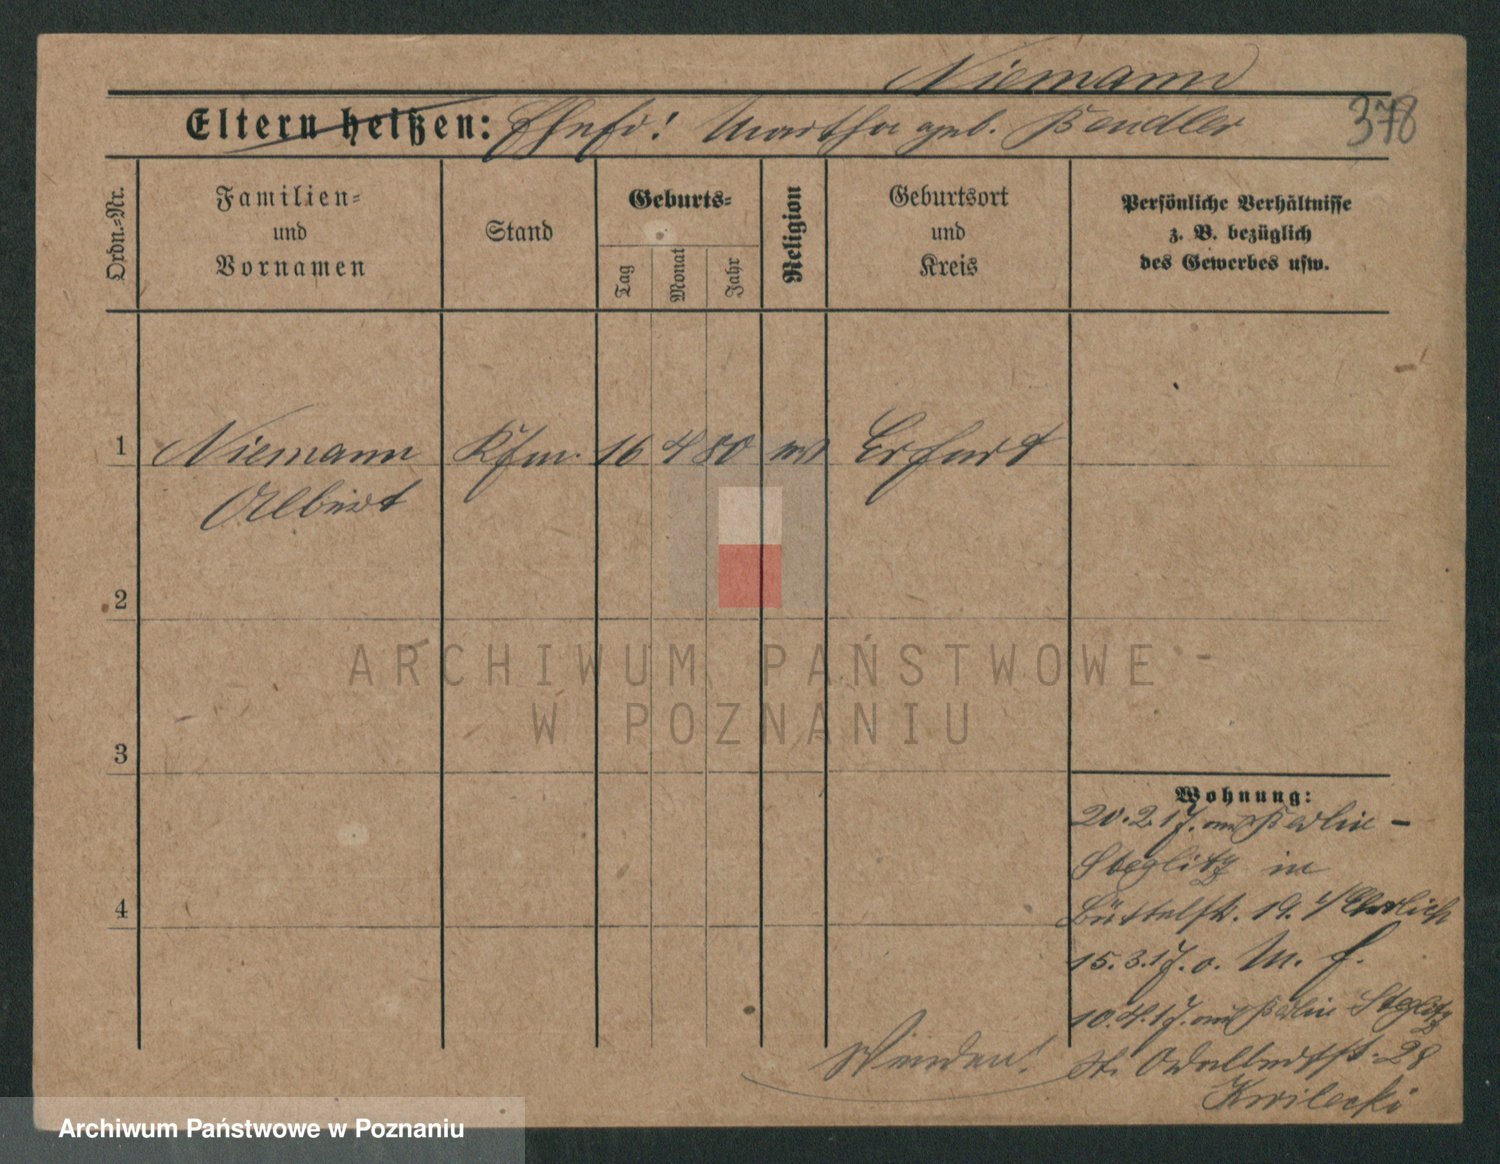 Niemann
Eltern heißen: Ehefr: Martha geb. Bendler
378
Ordn.-Nr.
Familien-
und
Vornamen
Stand
Geburts-
Tag
Monat
Jahr
Religion
Geburtsort
und
Kreis
Persönliche Verhältnisse
z. B. bezüglich
des Gewerbes usw.
1
Niemann Kfm. 16 4 80 ev Erfurt
Albert
2
ARCHIWUM PAŃSTWOWE
W POZNANIU
3
Wohnung:
20.2.17. aus Berlin-
Steglitz in
Büttelstr. 19.
4
15.3.17. o. M. f.
10.4.17. aus Berlin Steglitz
St. Adalbertstr. 28
Kwilecki
Wenden!
Archiwum Państwowe w Poznaniu